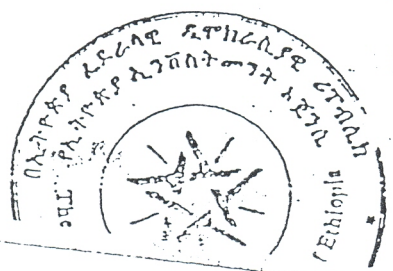 በኢትዮጵያ ፌደራላዊ ዲሞክራሲያዊ ሪፐብሊክ
የኢትዮጵያ ኢንቨስትመንት ኤጀንሲ
The
f Ethiopia